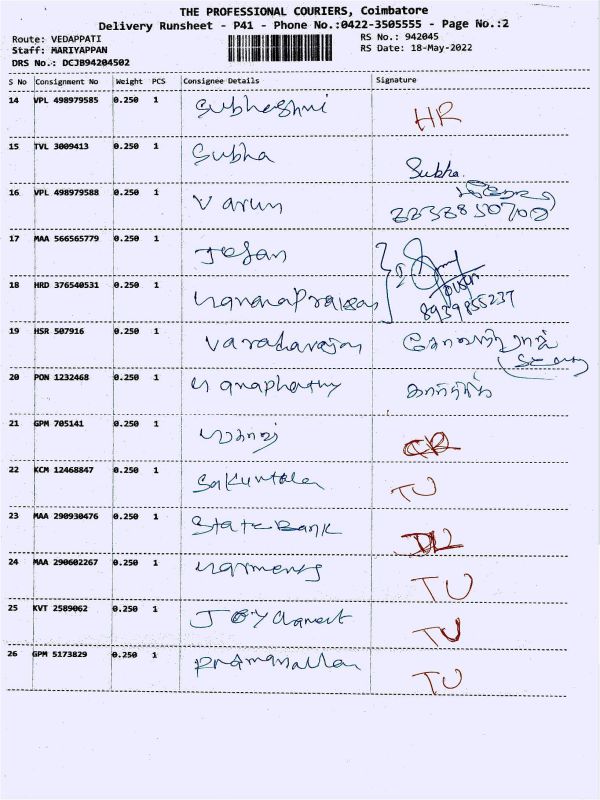 THE PROFESSIONAL COURIERS, Coimbatore
Delivery Runsheet - P41 - Phone No.:0422-3505555 - Page No.:2
Route: VEDAPPATI
RS No.: 942045
Staff: MARIYAPPAN
RS Date: 18-May-2022
DRS No.: DCJB94204502
S No Consignment No Weight PCS Consignee Details Signature
14 VPL 498979585 0.250 1 Subhashni HR
15 TVL 3009413 0.250 1 Subha Subha.
16 VPL 498979588 0.250 1 Varun
17 MAA 566565779 0.250 1
18 HRD 376540531 0.250 1
8939855237
19 HSR 507916 0.250 1 Varadarajan
20 PON 1232468 0.250 1
21 GPM 705141 0.250 1
22 KCM 12468847 0.250 1 Sakuntala TU
23 MAA 290930476 0.250 1 State Bank
24 MAA 290602267 0.250 1 TU
25 KVT 2589062 0.250 1 TU
26 GPM 5173829 0.250 1 TU